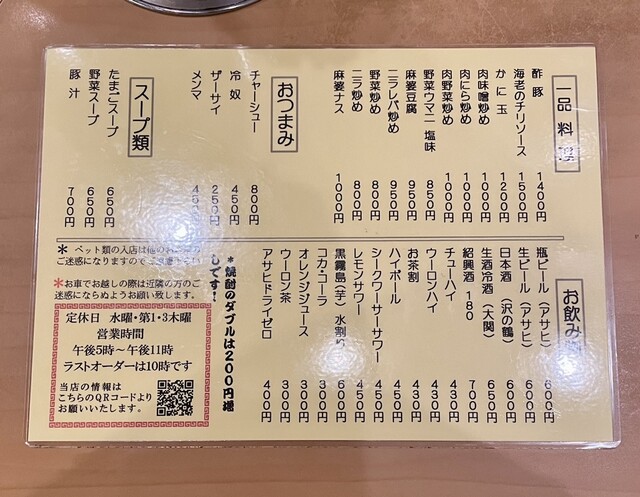 一品料理
酢豚 1400円
海老のチリソース 1500円
かに玉 1200円
肉味噌炒め 1000円
肉にら炒め 1000円
肉野菜炒め 1000円
野菜ウマニ 塩味 850円
麻婆豆腐 950円
ニラレバ炒め 950円
野菜炒め 800円
ニラ炒め 800円
麻婆ナス 1000円
おつまみ
チャーシュー 800円
冷奴 450円
ザーサイ 250円
メンマ 450円
スープ類
たまごスープ 650円
野菜スープ 650円
豚汁 700円
お飲み
瓶ビール(アサヒ) 600円
生ビール(アサヒ) 600円
日本酒(沢の鶴) 500円
生酒冷酒(大関) 650円
紹興酒180 700円
チューハイ 430円
ウーロンハイ 430円
お茶割 430円
ハイボール 450円
シークワーサーサワー 450円
レモンサワー 450円
黒霧島(芋)水割り 600円
コカ・コーラ 300円
オレンジジュース 300円
ウーロン茶 300円
アサヒドライゼロ 400円
*焼酎のダブルは200円増
しです!
* ペット類の入店は他の
ご迷惑になりますので
*お車でお越しの際は近隣の方のご
迷惑にならぬようお願い致します。
定休日 水曜・第1・3木曜
営業時間
午後5時～午後11時
ラストオーダーは10時です
当店の情報は
こちらのQRコードより
お願いいたします。